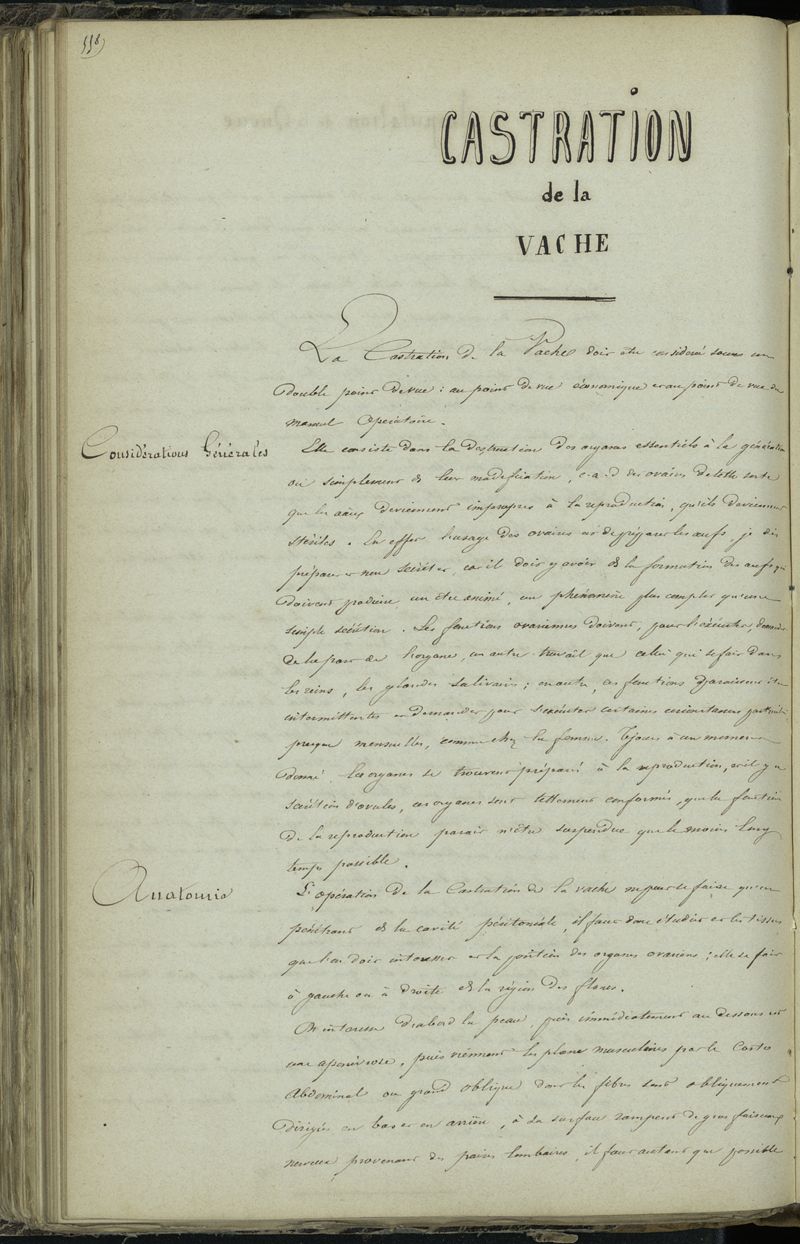 118)
CASTRATION
de la
VACHE
La Castration de la Vache doit être considéré sous un
double point de vue : au point de vue économique et au point de vue du
manuel Opératoire.
Considérations Générales
Elle consiste dans la destruction des organes essentiels à la génération
ou simplement ds leur modification, c.a.d des ovaires de telle sorte
que les deviennent impropres à la reproduction, qu'ils deviennent
stériles. En effet l'usage des ovaires est de préparer les œufs, je dis
préparer et non sécréter, car il doit y avoir ds la formation des œufs qui
doivent produire un être animé, un phénomène plus complet qu'une
simple sécrétion. Les fonctions ovariennes doivent, pour s'exécuter,
de la part de l'organe, un autre travail que celui qui se fait dans
les reins, les glandes salivaires ; en outre, ces fonctions paraissent être
intermittentes et demander pour s'exécuter certaines circonstances
presque mensuelles, comme chez la femme. à un moment
donné les organes se trouvent préparés à la reproduction, et il y a
sécrétion d'ovules, ces organes sont tellement conformés, que la fonction
de la reproduction parait n'être suspendue que le moins long
temps possible.
Anatomie
L'opération de la Castration de la vache ne peut se faire qu'en
pénétrant ds la cavité péritonéale, il faut donc étudier et les tissus
que l'on doit intéresser et la position des organes ovariens ; elle se fait
à gauche ou à droite ds la région des flancs.
On intéresse d'abord la peau puis immédiatement au dessous est
une aponévrose, puis viennent les plans musculaires par le Costo
Abdominal ou grand oblique dont les fibres sont obliquement
dirigées en bas et en arrière, à sa surface rampent de gros faisceaux
nerveux provenant des paires lombaires, il faut autant que possible